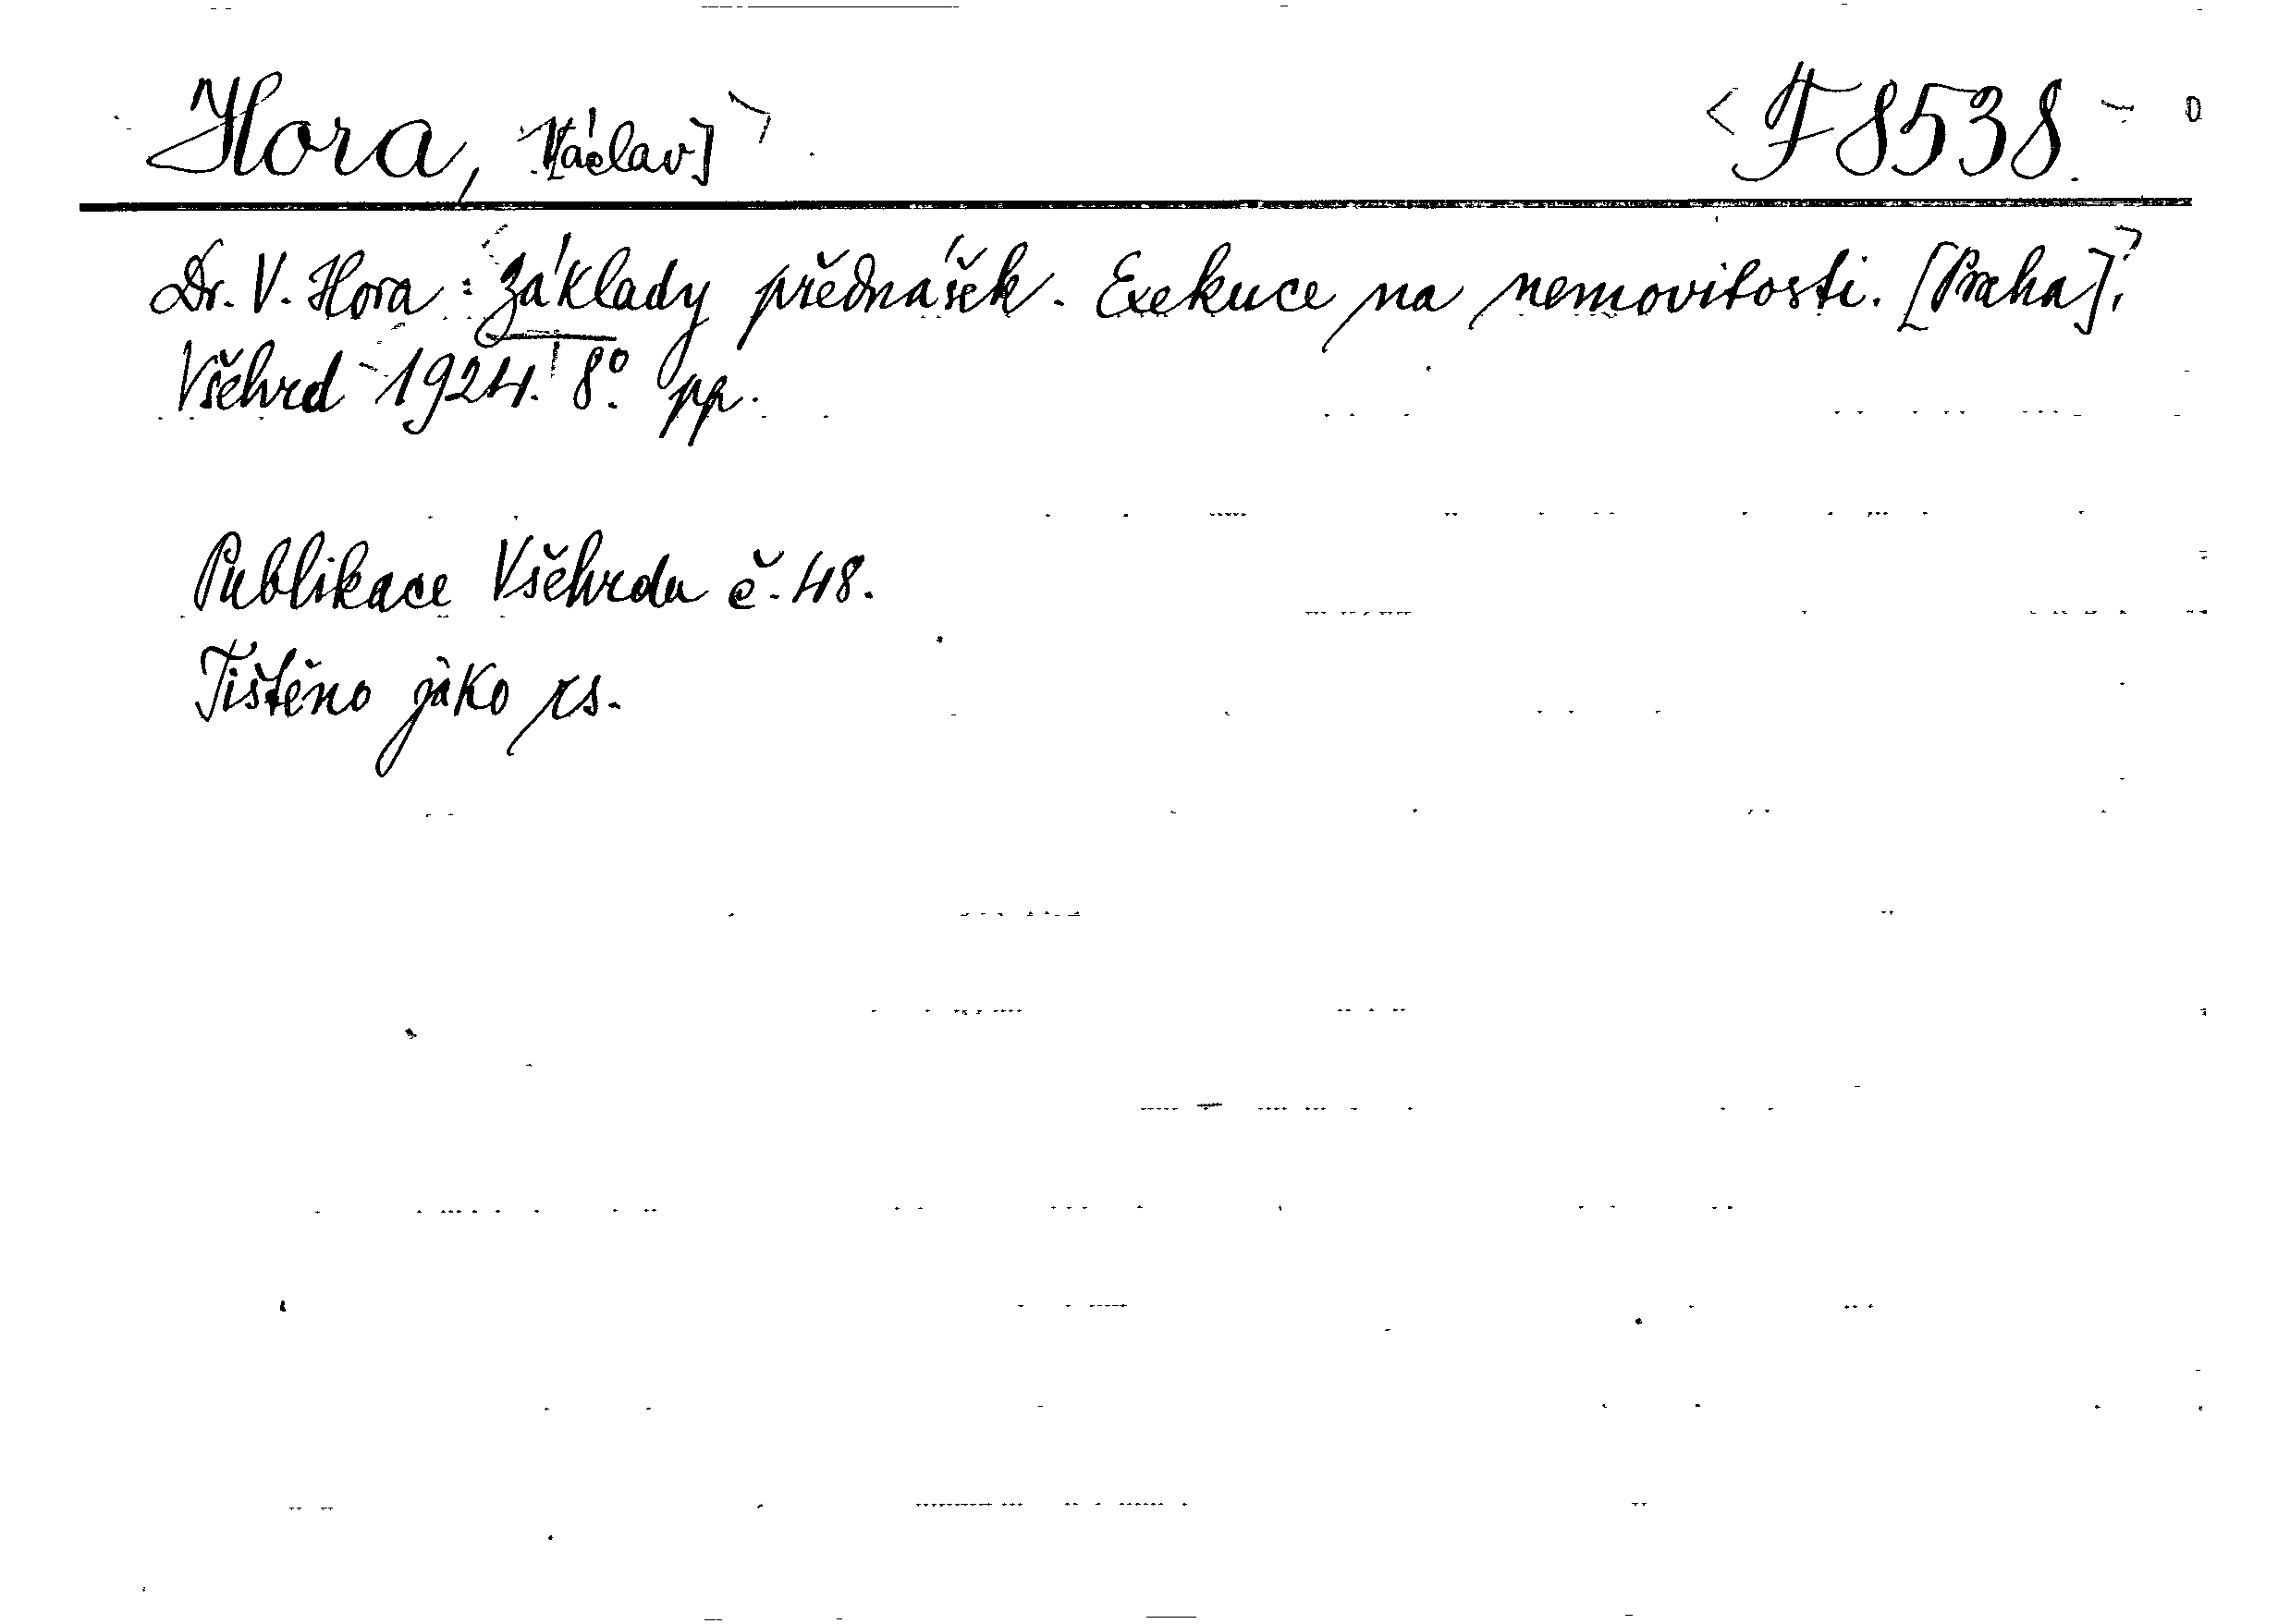 Hora, Václav] F 8538.
Dr. V. Hora: Základy přednášek. Exekuce na nemovitosti. [Praha],
Všehrd 1924. 8° pp.
Publikace Všehrdu č. 48.
Tištěno jako rs.